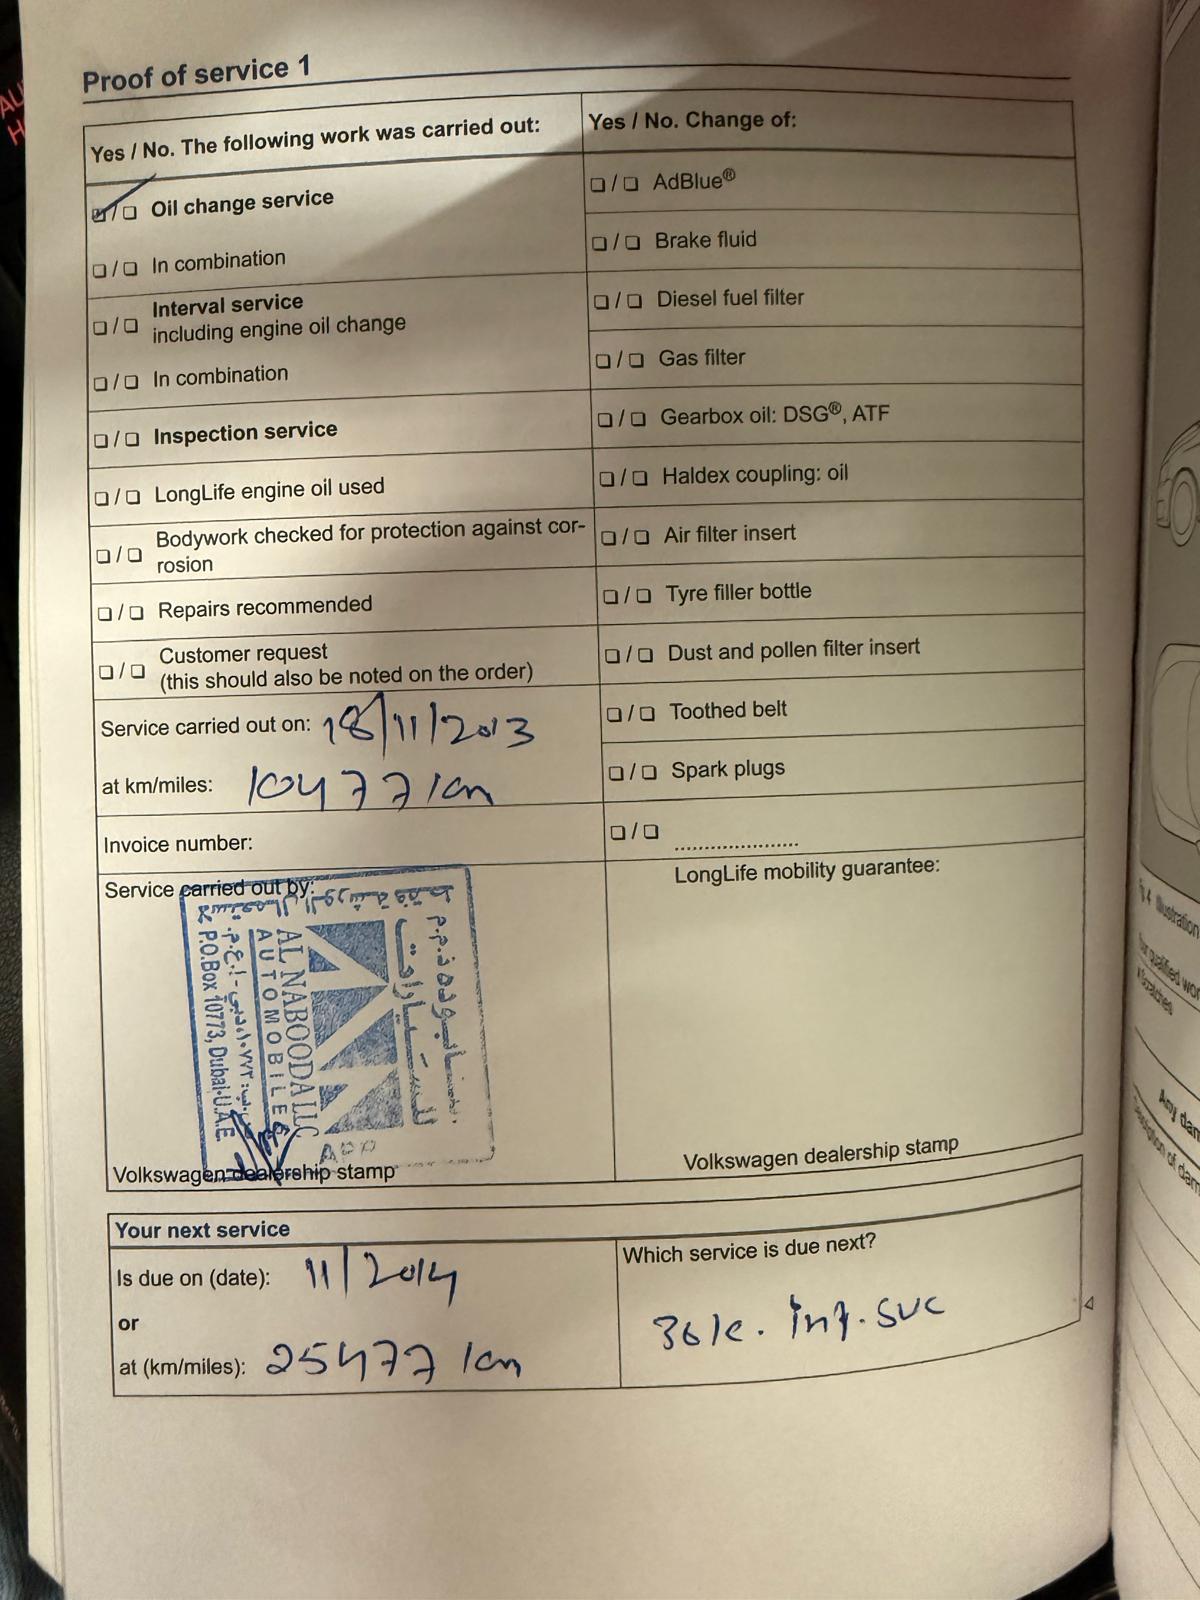 Proof of service 1
Yes / No. The following work was carried out:
☑/❏ Oil change service
❏/❏ In combination
❏/❏ Interval service
including engine oil change
❏/❏ In combination
❏/❏ Inspection service
❏/❏ LongLife engine oil used
❏/❏ Bodywork checked for protection against cor-
rosion
❏/❏ Repairs recommended
❏/❏ Customer request
(this should also be noted on the order)
Service carried out on: 18/11/2013
at km/miles: 10477 km
Invoice number:
Service carried out by:
AL NABOODA LLC
AUTOMOBILES
P.O.Box 10773, Dubai-U.A.E.
للسيارات
Volkswagen dealership stamp
Yes / No. Change of:
❏/❏ AdBlue®
❏/❏ Brake fluid
❏/❏ Diesel fuel filter
❏/❏ Gas filter
❏/❏ Gearbox oil: DSG®, ATF
❏/❏ Haldex coupling: oil
❏/❏ Air filter insert
❏/❏ Tyre filler bottle
❏/❏ Dust and pollen filter insert
❏/❏ Toothed belt
❏/❏ Spark plugs
❏/❏ .....................
LongLife mobility guarantee:
Volkswagen dealership stamp
Your next service
Is due on (date): 11/2014
or
at (km/miles): 25477 km
Which service is due next?
30k. Int. SVC
Any dam